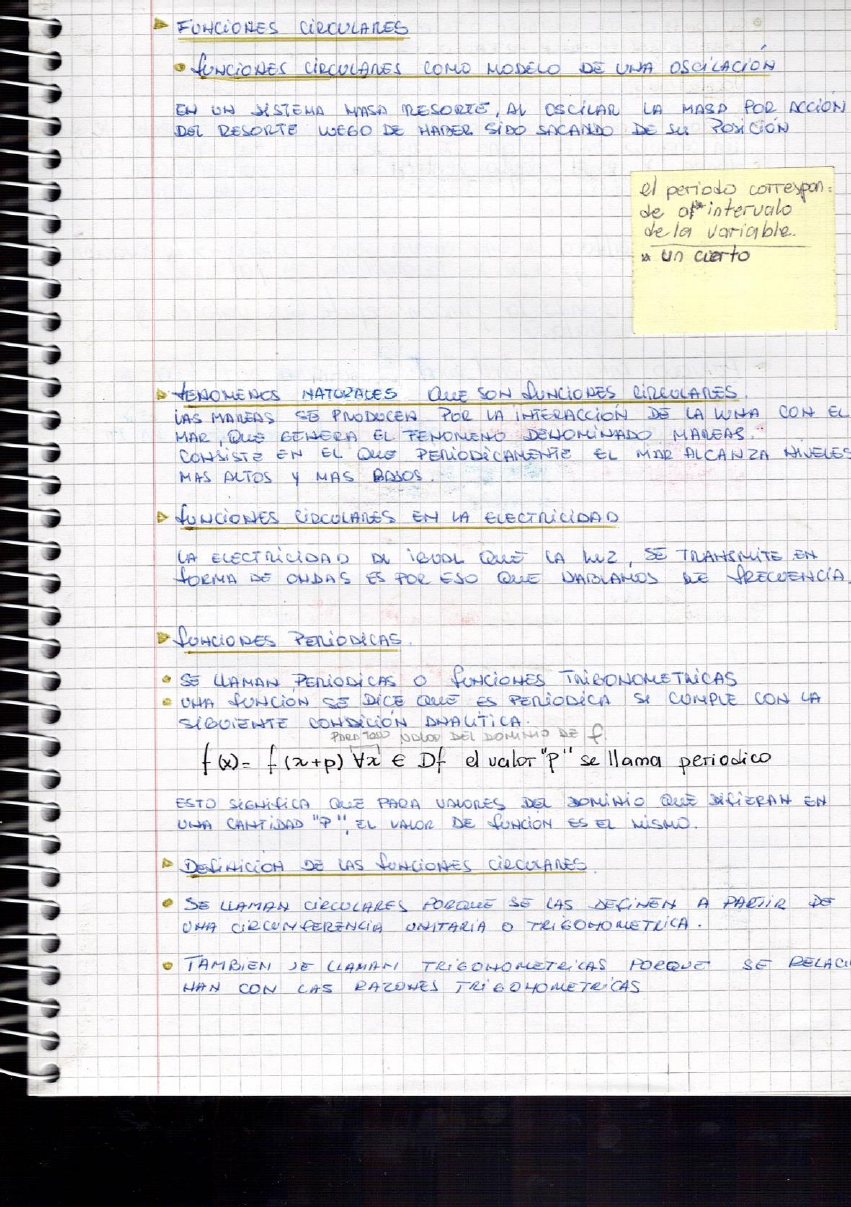 FUNCIONES CIRCULARES
FUNCIONES CIRCULARES COMO MODELO DE UNA OSCILACIÓN
EN UN SISTEMA MASA RESORTE, AL OSCILAR LA MASA POR ACCIÓN
DEL RESORTE LUEGO DE HABER SIDO SACANDO DE SU POSICIÓN
el periodo correspon-
de a * intervalo
de la variable.
* un cierto
FENOMENOS NATURALES QUE SON FUNCIONES CIRCULARES.
LAS MAREAS SE PRODUCEN POR LA INTERACCIÓN DE LA LUNA CON EL
MAR, QUE GENERA EL FENOMENO DENOMINADO MAREAS.
CONSISTE EN EL QUE PERIÓDICAMENTE EL MAR ALCANZA NIVELES
MAS ALTOS Y MAS BAJOS.
FUNCIONES CIRCULARES EN LA ELECTRICIDAD
LA ELECTRICIDAD AL IGUAL QUE LA LUZ, SE TRANSMITE EN
FORMA DE ONDAS ES POR ESO QUE HABLAMOS DE FRECUENCIA.
FUNCIONES PERIODICAS.
SE LLAMAN PERIODICAS O FUNCIONES TRIGONOMETRICAS
UNA FUNCION SE DICE QUE ES PERIODICA SI CUMPLE CON LA
SIGUIENTE CONDICIÓN ANALITICA.
PARA TODO VALOR DEL DOMINIO DE f.
f(x)= f(x+p) ∀x ∈ Df el valor "P" se llama periodico
ESTO SIGNIFICA QUE PARA VALORES DEL DOMINIO QUE DIFIERAN EN
UNA CANTIDAD "P", EL VALOR DE FUNCION ES EL MISMO.
DEFINICION DE LAS FUNCIONES CIRCULARES.
SE LLAMAN CIRCULARES PORQUE SE LAS DEFINEN A PARTIR DE
UNA CIRCUNFERENCIA UNITARIA O TRIGONOMETRICA.
TAMBIEN SE LLAMAN TRIGONOMETRICAS PORQUE SE RELACIO
NAN CON LAS RAZONES TRIGONOMETRICAS